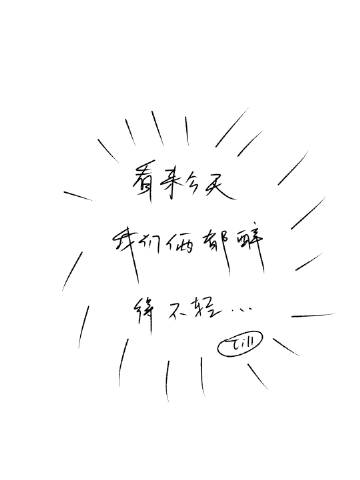 看来今天
我们俩都醉
得不轻...
Till